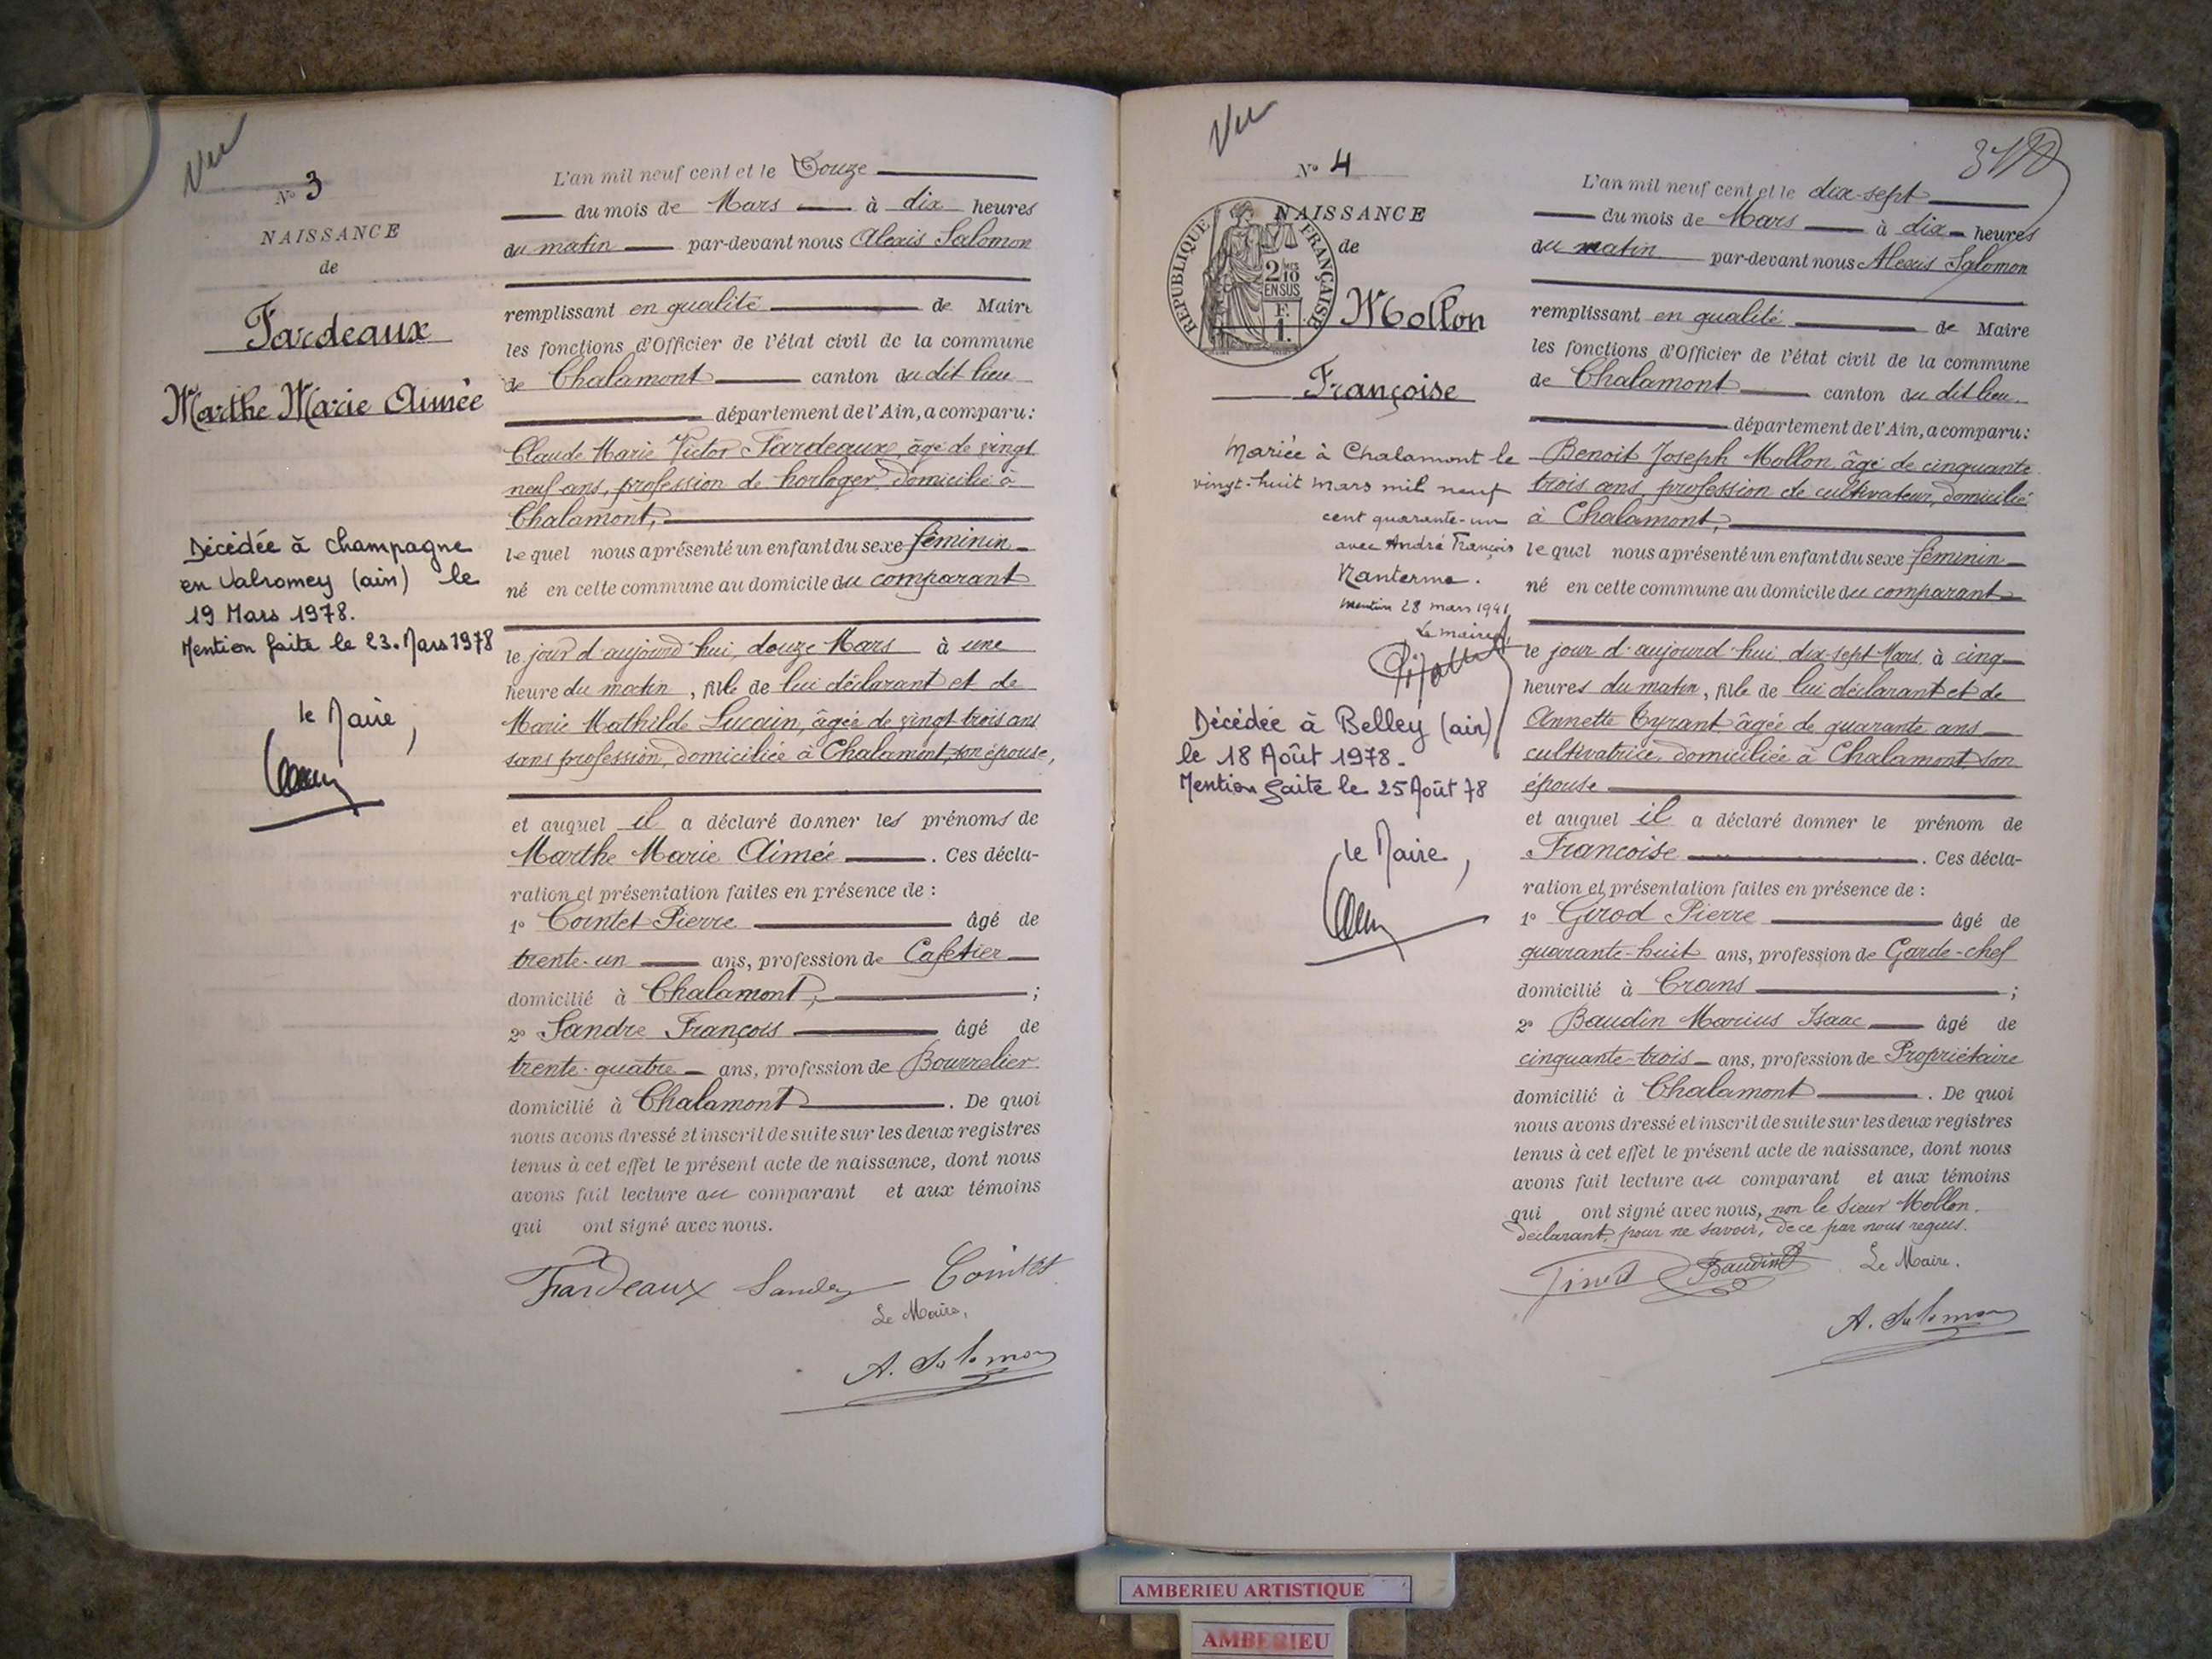 Vu
N° 3
NAISSANCE
de
Fardeaux
Marthe Marie Aimée
Décédée à Champagne
en Valromey (ain) le
19 Mars 1978.
Mention faite le 23. Mars 1978
le Maire,
L'an mil neuf cent et le Douze
du mois de Mars à dix heures
du matin par-devant nous Alexis Salomon
remplissant en qualité de Maire
les fonctions d'Officier de l'état civil de la commune
de Chalamont canton du dit lieu
département de l'Ain, a comparu:
Claude Marie Victor Fardeaux, âgé de vingt
neuf ans, profession de horloger, domicilié à
Chalamont,
lequel nous a présenté un enfant du sexe féminin
né en cette commune au domicile du comparant
le jour d'aujourd'hui, douze Mars à une
heure du matin, fille de lui déclarant et de
Marie Mathilde Lucain, âgée de vingt trois ans
sans profession, domiciliée à Chalamont, son épouse,
et auquel il a déclaré donner les prénoms de
Marthe Marie Aimée. Ces décla-
ration et présentation faites en présence de :
1° Cointet Pierre âgé de
trente-un ans, profession de Cafetier
domicilié à Chalamont, ;
2° Sandre François âgé de
trente-quatre ans, profession de Bourrelier
domicilié à Chalamont. De quoi
nous avons dressé et inscrit de suite sur les deux registres
tenus à cet effet le présent acte de naissance, dont nous
avons fait lecture au comparant et aux témoins
qui ont signé avec nous.
Fardeaux Sandre Cointet
Le Maire,
A. Salomon
Vu
N° 4
NAISSANCE
de
RÉPUBLIQUE FRANÇAISE
2 MES
10
EN SUS
F.
1.
Mollon
Françoise
Mariée à Chalamont le
vingt-huit mars mil neuf
cent quarante-un
avec André François
Nanterme.
Mention 28 mars 1941
Le maire,
Décédée à Belley (ain)
le 18 Août 1978.
Mention faite le 25 Août 78
le Maire,
L'an mil neuf cent et le dix-sept
du mois de Mars à dix heures
du matin par-devant nous Alexis Salomon
remplissant en qualité de Maire
les fonctions d'Officier de l'état civil de la commune
de Chalamont canton du dit lieu
département de l'Ain, a comparu:
Benoit Joseph Mollon âgé de cinquante
trois ans, profession de cultivateur, domicilié
à Chalamont,
lequel nous a présenté un enfant du sexe féminin
né en cette commune au domicile du comparant
le jour d'aujourd'hui dix-sept Mars à cinq
heures du matin, fille de lui déclarant et de
Annette Tyrant âgée de quarante ans
cultivatrice, domiciliée à Chalamont, son
épouse
et auquel il a déclaré donner le prénom de
Françoise. Ces décla-
ration et présentation faites en présence de :
1° Girod Pierre âgé de
quarante-huit ans, profession de Garde-chef
domicilié à Crans ;
2° Baudin Marius Isaac âgé de
cinquante-trois ans, profession de Propriétaire
domicilié à Chalamont. De quoi
nous avons dressé et inscrit de suite sur les deux registres
tenus à cet effet le présent acte de naissance, dont nous
avons fait lecture au comparant et aux témoins
qui ont signé avec nous, non le sieur Mollon.
déclarant, pour ne savoir, de ce par nous requis.
Baudin Le Maire.
A. Salomon
AMBERIEU ARTISTIQUE
AMBERIEU